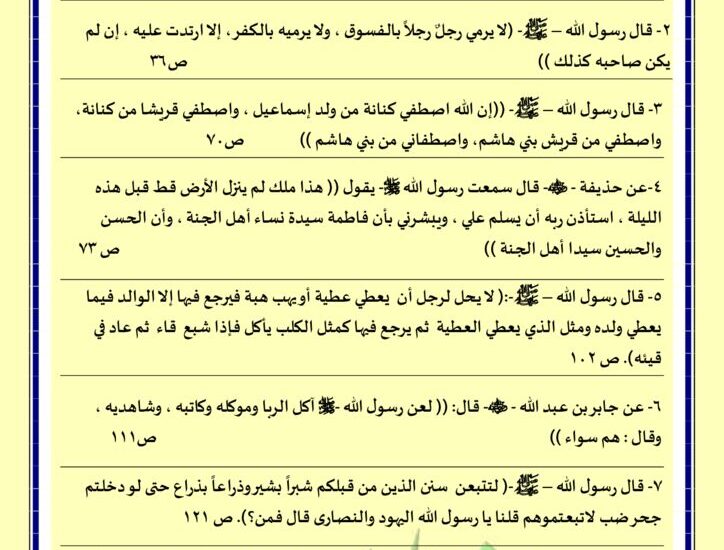 ٢- قال رسول الله – ﷺ- (لا يرمي رجلٌ رجلاً بالفسوق ، ولا يرميه بالكفر، إلا ارتدت عليه ، إن لم
يكن صاحبه كذلك )) ص٣٦
٣- قال رسول الله – ﷺ- ((إن الله اصطفي كنانة من ولد إسماعيل ، واصطفي قريشا من كنانة،
واصطفي من قريش بني هاشم، واصطفاني من بني هاشم )) ص٧٠
٤-عن حذيفة - رضي الله عنه- قال سمعت رسول الله ﷺ- يقول (( هذا ملك لم ينزل الأرض قط قبل هذه
الليلة ، استأذن ربه أن يسلم علي ، ويبشرني بأن فاطمة سيدة نساء أهل الجنة ، وأن الحسن
والحسين سيدا أهل الجنة )) ص ٧٣
٥- قال رسول الله – ﷺ-:( لا يحل لرجل أن يعطي عطية أويهب هبة فيرجع فيها إلا الوالد فيما
يعطي ولده ومثل الذي يعطي العطية ثم يرجع فيها كمثل الكلب يأكل فإذا شبع قاء ثم عاد في
قيئه). ص ١٠٢
٦- عن جابر بن عبد الله - رضي الله عنه- قال: (( لعن رسول الله -ﷺ آكل الربا وموكله وكاتبه ، وشاهديه ،
وقال : هم سواء )) ص١١١
٧- قال رسول الله – ﷺ-( لتتبعن سنن الذين من قبلكم شبراً بشبر وذراعاً بذراع حتى لو دخلتم
جحر ضب لاتبعتموهم قلنا يا رسول الله اليهود والنصارى قال فمن؟). ص ١٢١